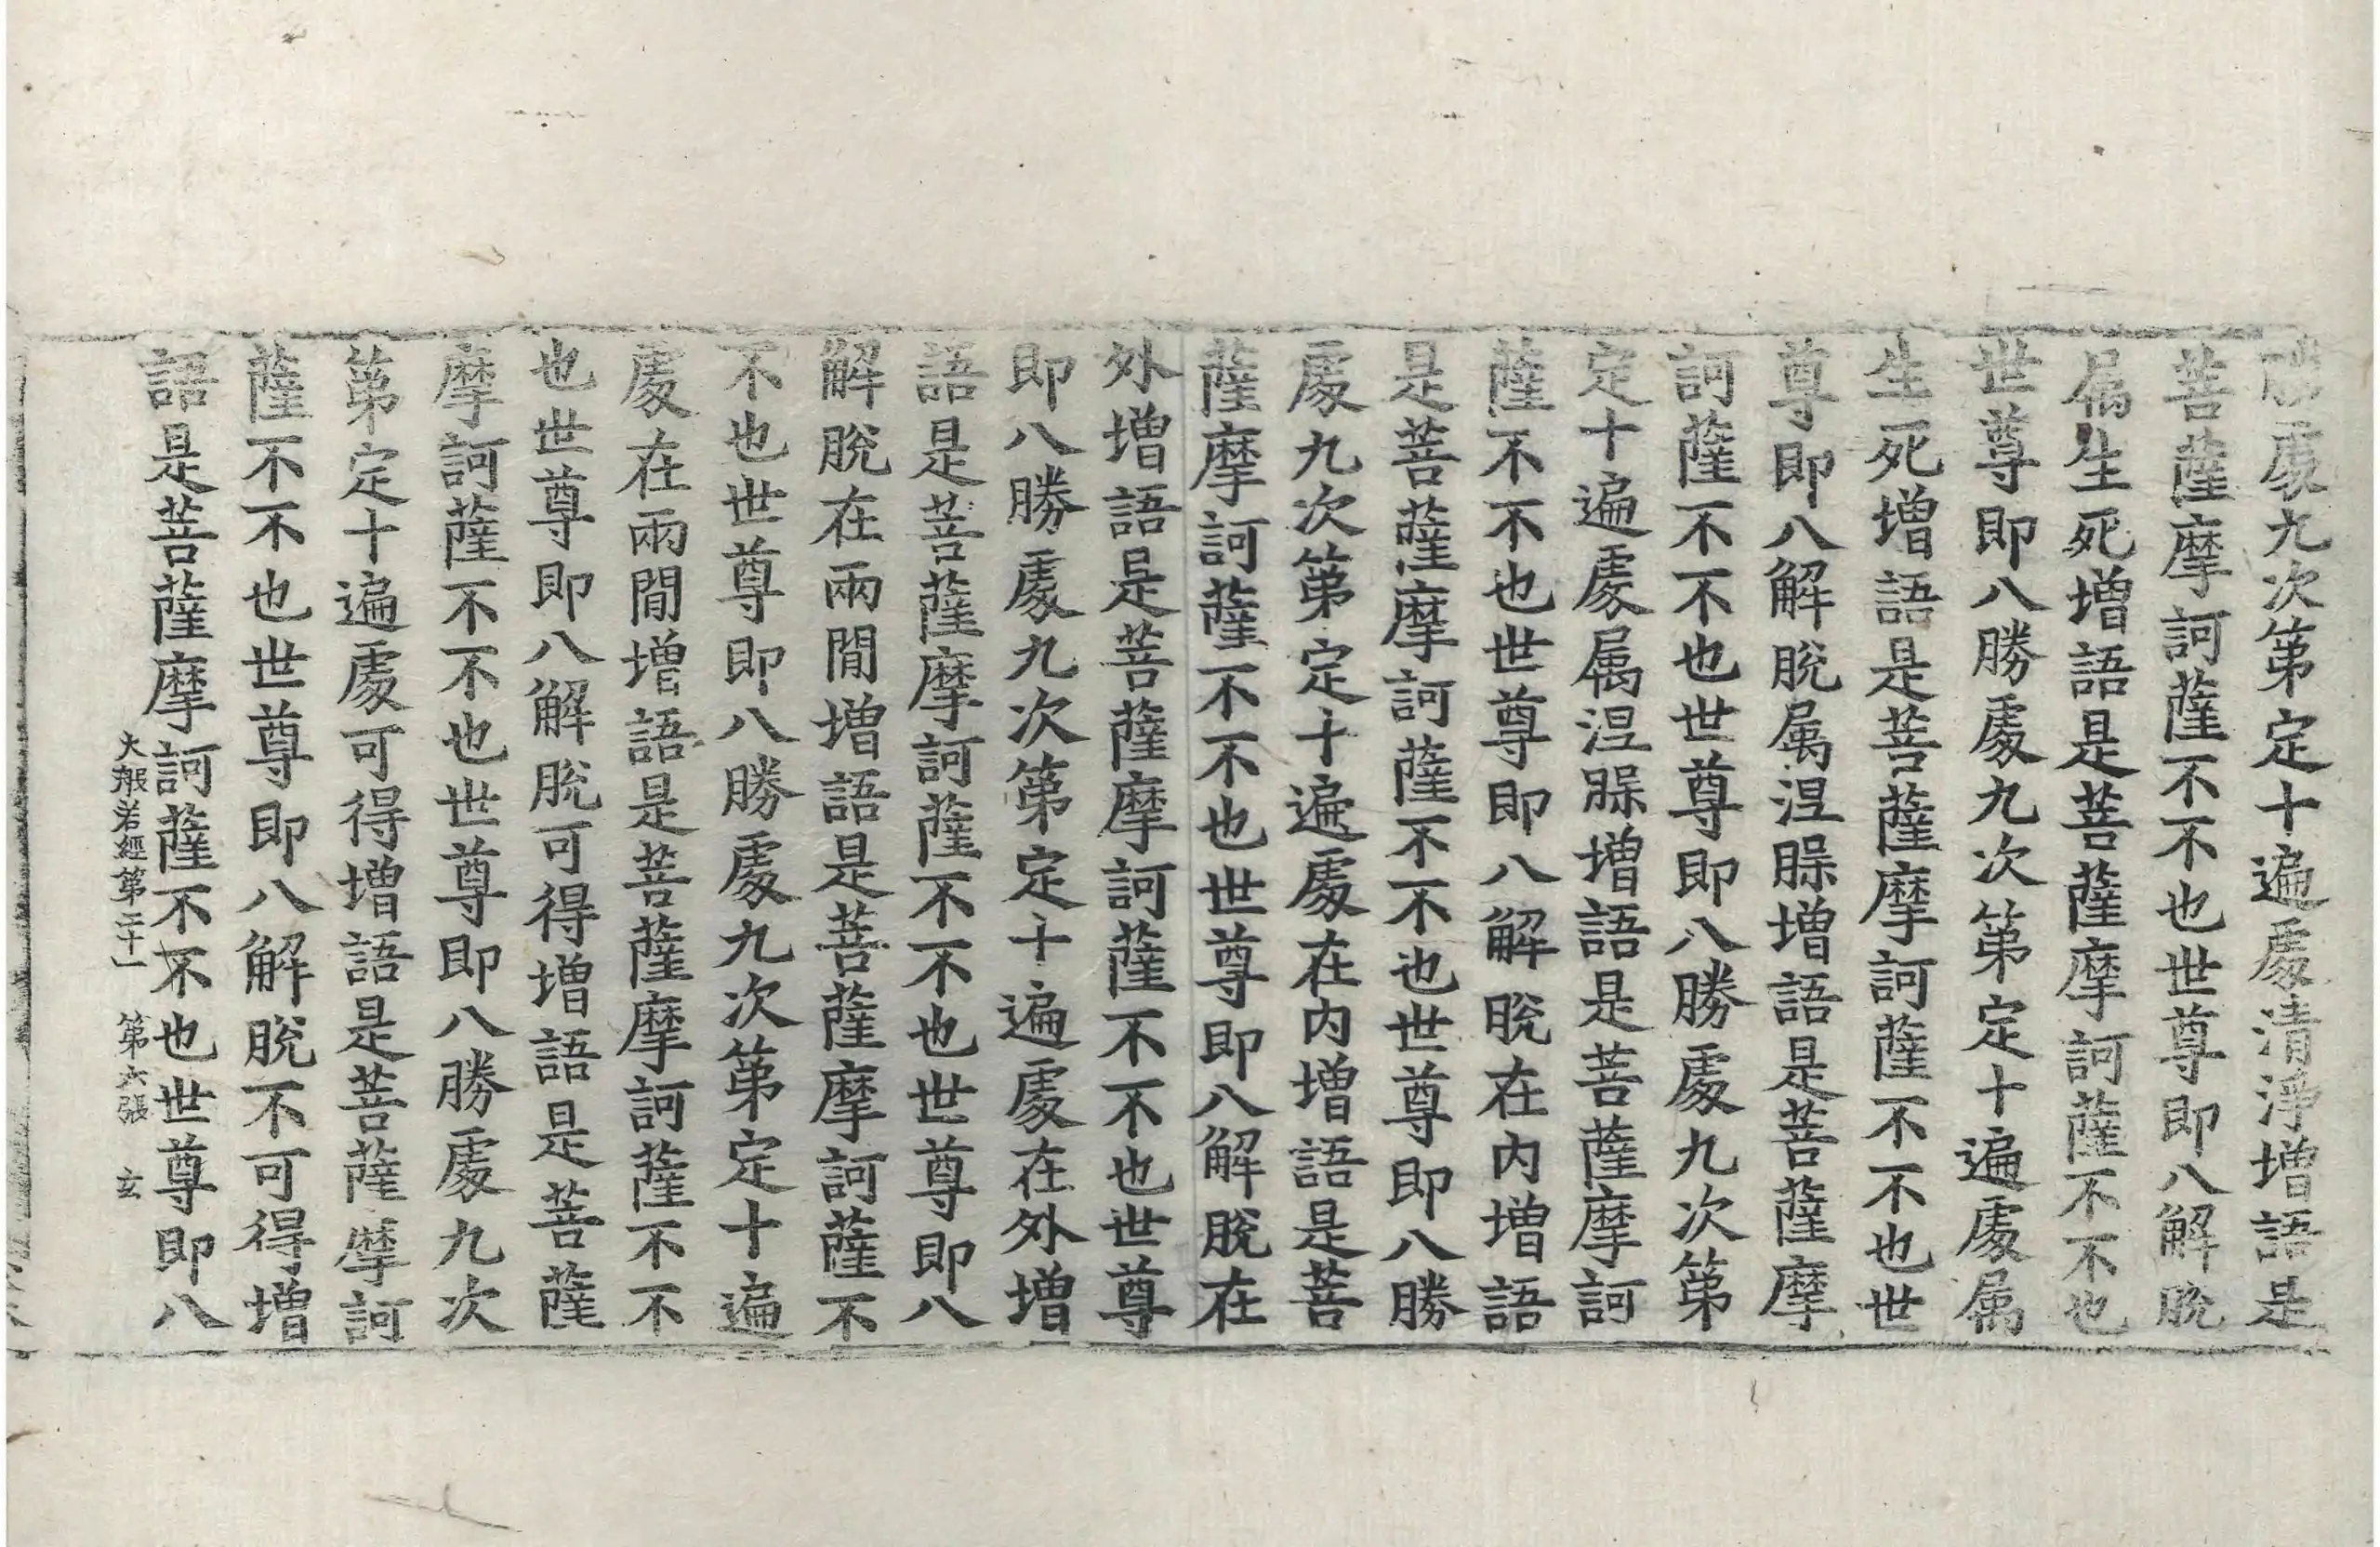 勝處九次第定十遍處清淨增語是
菩薩摩訶薩不不也世尊即八解脫
屬生死增語是菩薩摩訶薩不不也
世尊即八勝處九次第定十遍處屬
生死增語是菩薩摩訶薩不不也世
尊即八解脫屬涅槃增語是菩薩摩
訶薩不不也世尊即八勝處九次第
定十遍處屬涅槃增語是菩薩摩訶
薩不不也世尊即八解脫在內增語
是菩薩摩訶薩不不也世尊即八勝
處九次第定十遍處在內增語是菩
薩摩訶薩不不也世尊即八解脫在
外增語是菩薩摩訶薩不不也世尊
即八勝處九次第定十遍處在外增
語是菩薩摩訶薩不不也世尊即八
解脫在兩間增語是菩薩摩訶薩不
不也世尊即八勝處九次第定十遍
處在兩間增語是菩薩摩訶薩不不
也世尊即八解脫可得增語是菩薩
摩訶薩不不也世尊即八勝處九次
第定十遍處可得增語是菩薩摩訶
薩不不也世尊即八解脫不可得增
語是菩薩摩訶薩不不也世尊即八
大般若經第二十一 第六張 玄